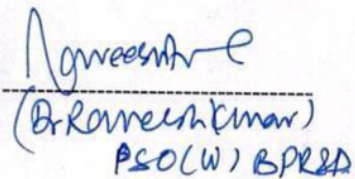 (Dr Ramesh Kumar)
PSO(W) BPR&D